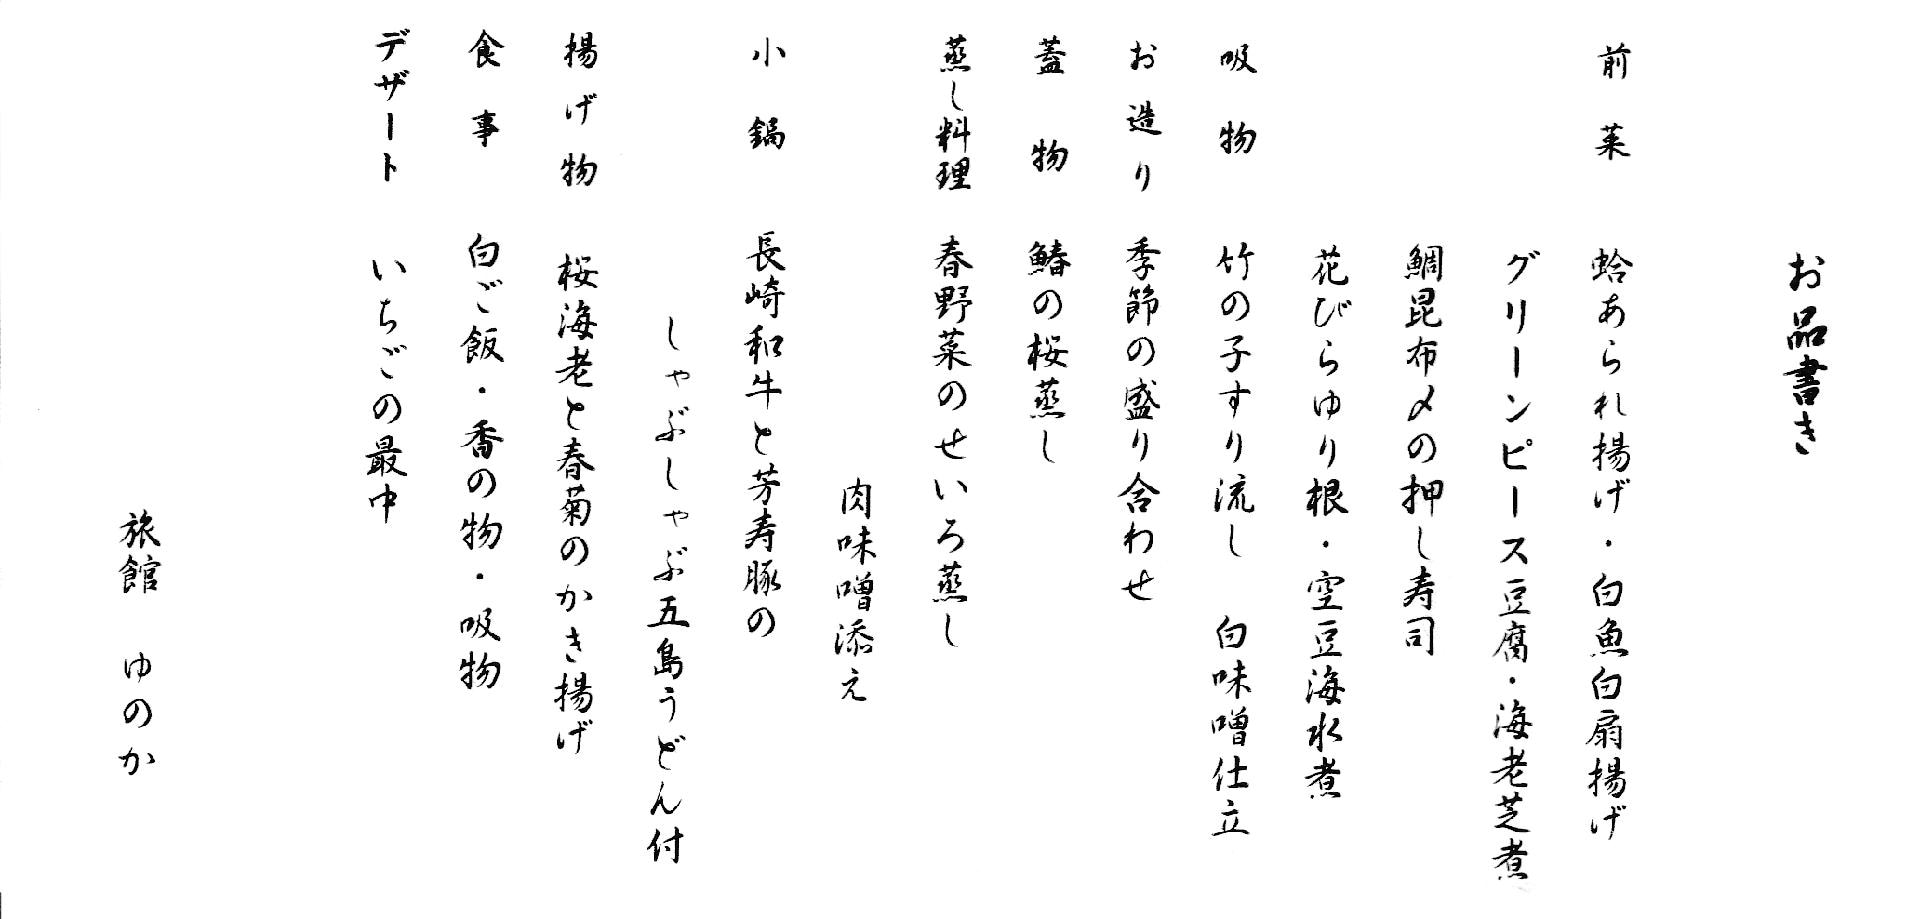 お品書き
前菜 蛤あられ揚げ・白魚白扇揚げ
グリーンピース豆腐・海老芝煮
鯛昆布〆の押し寿司
花びらゆり根・空豆海水煮
吸物 竹の子すり流し 白味噌仕立
お造り 季節の盛り合わせ
蓋物 鰆の桜蒸し
蒸し料理 春野菜のせいろ蒸し
肉味噌添え
小鍋 長崎和牛と芳寿豚の
しゃぶしゃぶ五島うどん付
揚げ物 桜海老と春菊のかき揚げ
食事 白ご飯・香の物・吸物
デザート いちごの最中
旅館 ゆのか